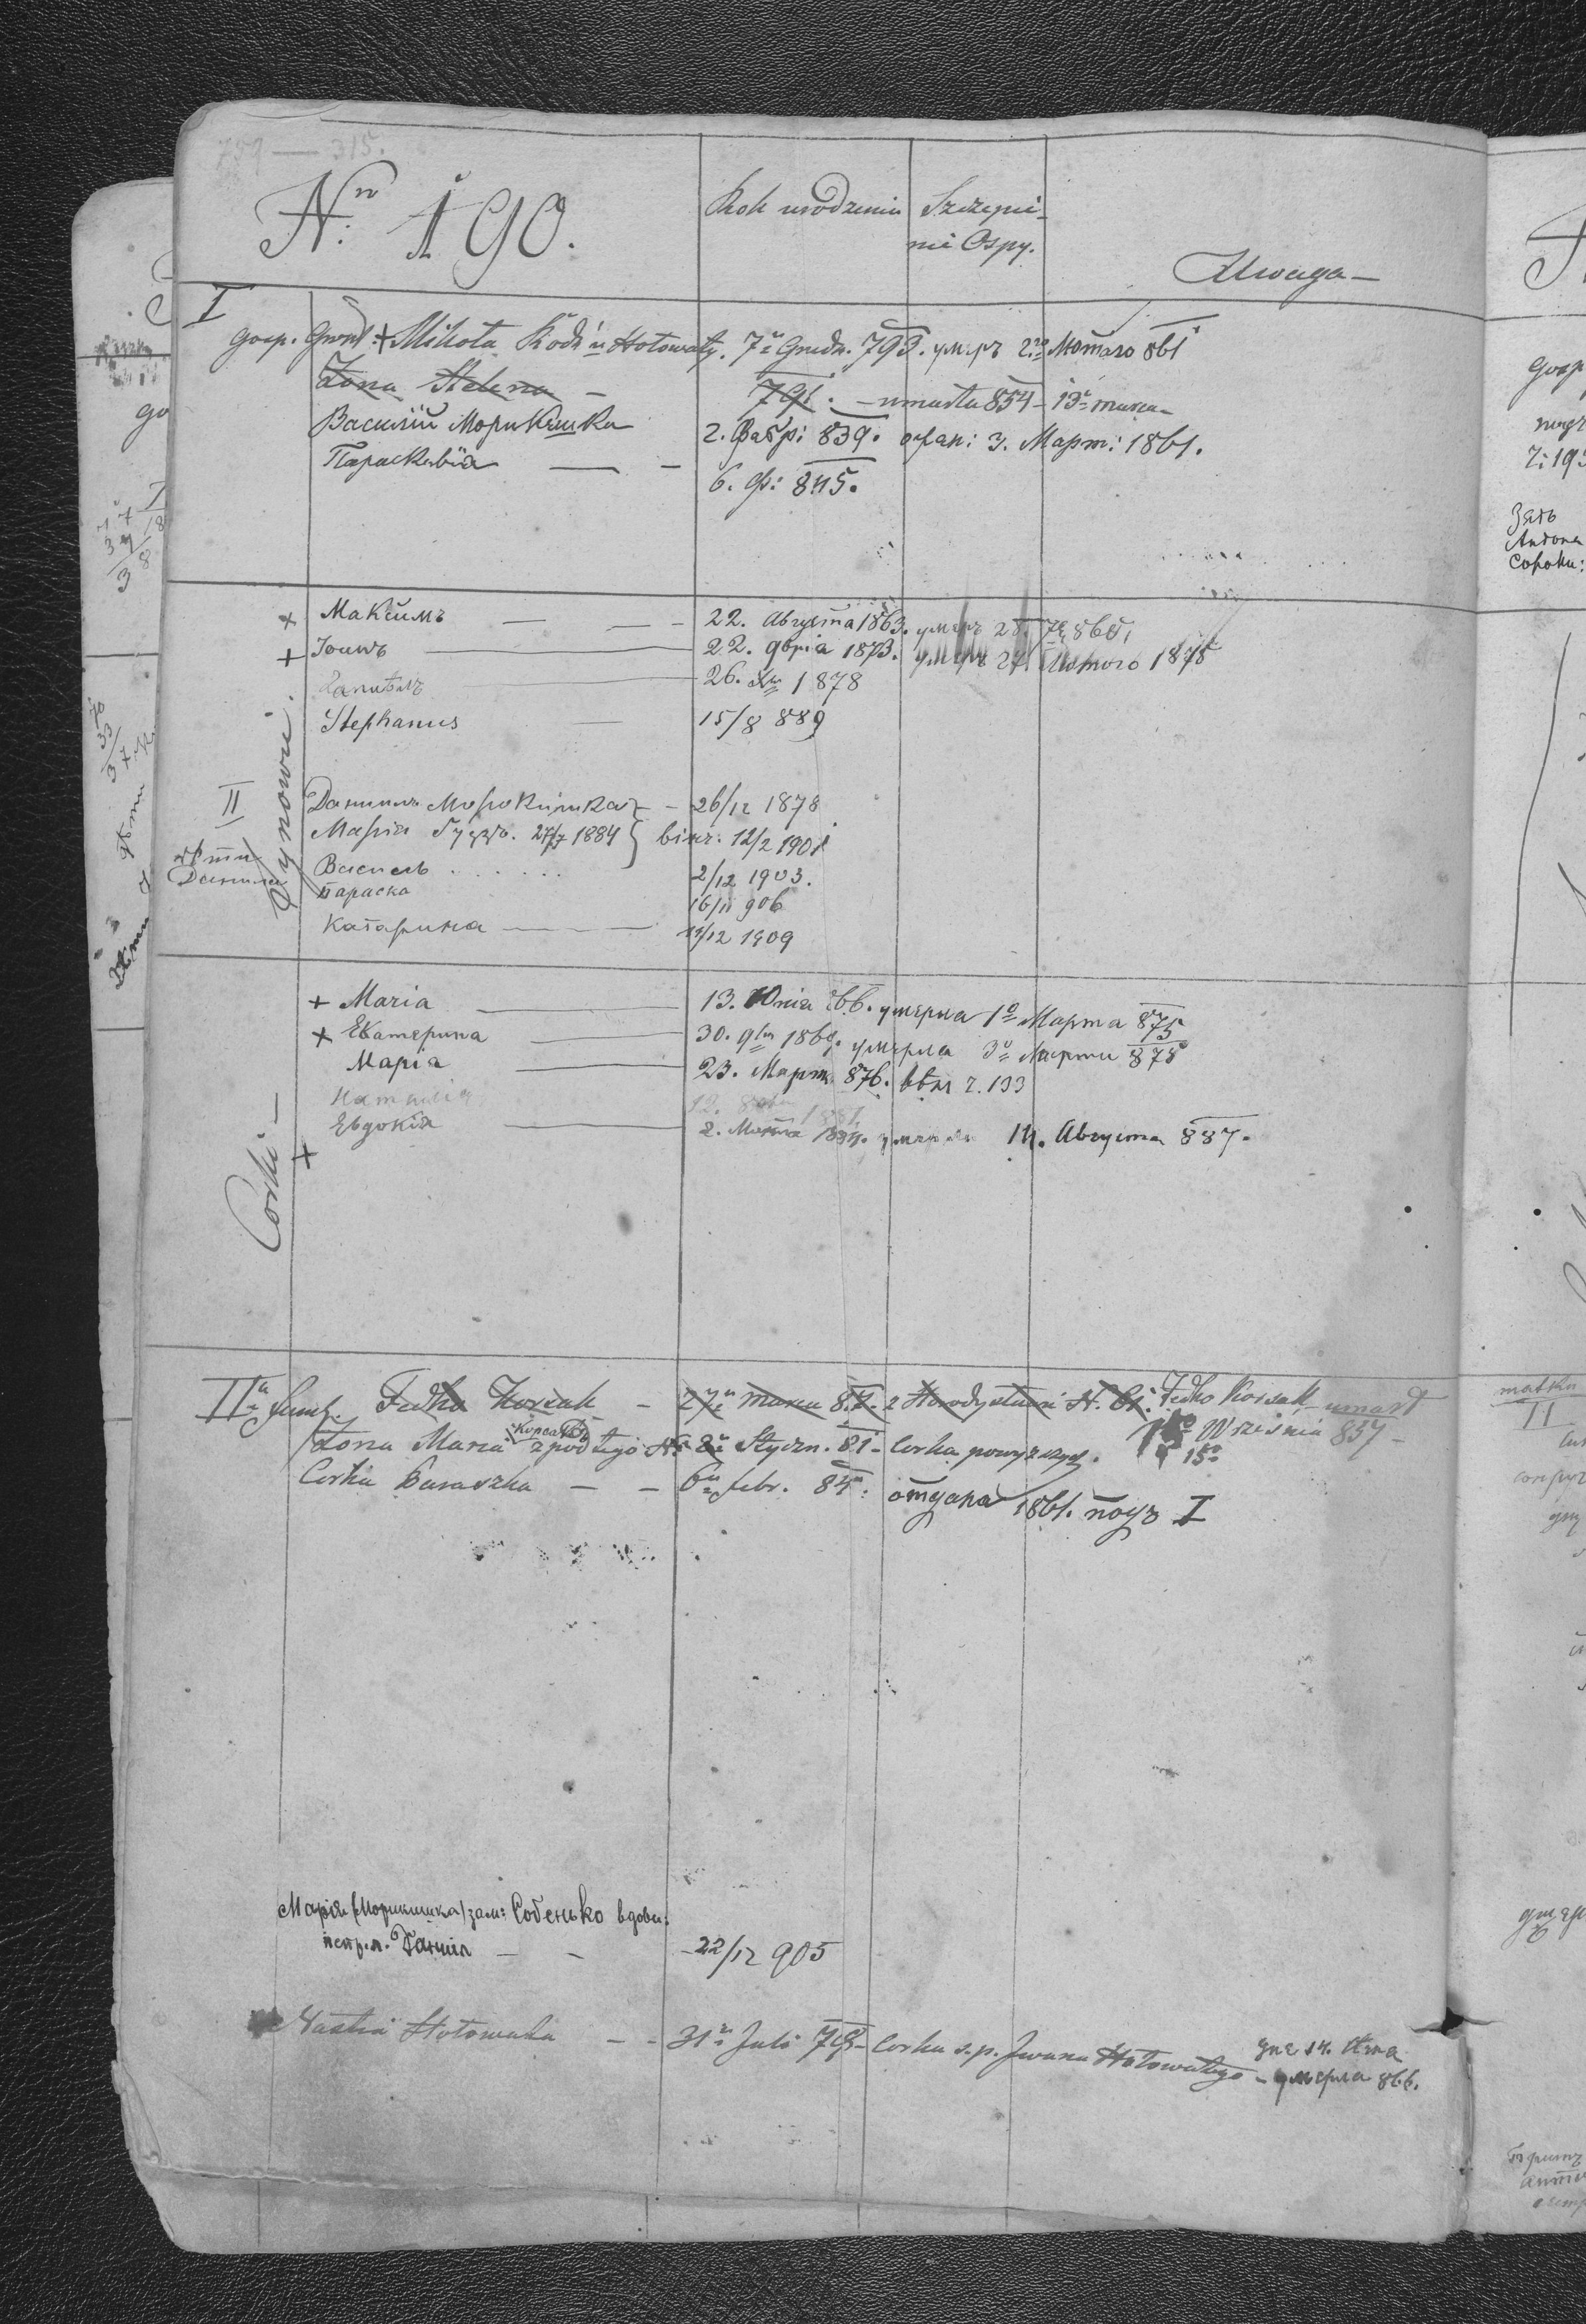 759 — 315.
Nro 190.
Rok urodzenia
Szczepie-
nie Ospy.
Uwaga —
I
gosp. Grunt. + Mikoła Kość Hołowaty. 7. Grudn. 793. умеръ 2го Лютаго 861
Żona Helena — 791. — umarła 854 — 13 marca
Василій Морикишка 2. Февр: 839. 3. Март: 1861.
Параскевія — — 6. Ф: 845.
Synowie.
+ Максимъ — — 22. Августа 1863. умеръ 28. 865.
+ Іоаннъ — 22. 9брія 1873. умеръ 27. Лютого 1875
Даниїлъ — 26. 1878
Stephanus — 15/8 889
II Даниилъ Морокишка — 26/12 1878
Марія Гудзъ. 27/7 1884 } вінч: 12/2 1901
дѣти
Данила
Василь . . . . . . 2/12 1903.
Параска 16/11 906
Катарина — — 11/12 1909
Corki —
+ Maria — 13. Юнія 866. умерла 1о Марта 875
+ Екатерина — 30. 9bra 1869. умерла 3о Марта 875
Марія — 23. Март. 876. вѣн ч. 133
Наталія 12. 1881
+ Евдокія — 2. 1884. умерла 14. Августа 887.
IIa famil. Fedko Korsak — 27 marca 8.2. z Horodysławic N. 61. Fedko Korsak umarł
15o Września 857 —
15o
Żona Maria Корсакъ z pod tego N. 8 Styczn. 81 — Corka powyższych.
Corka Paraszka — — 6 febr. 84. отдана 1861. подъ I
Марія (Морикишка) зам: Собенько вдова:
непр.л. Даниїл — — 22/12 905
Nastia Hołowata — — 31 Juli 79 — Corka s.p. Iwana Hołowatego — умерла 866.
дне 14.